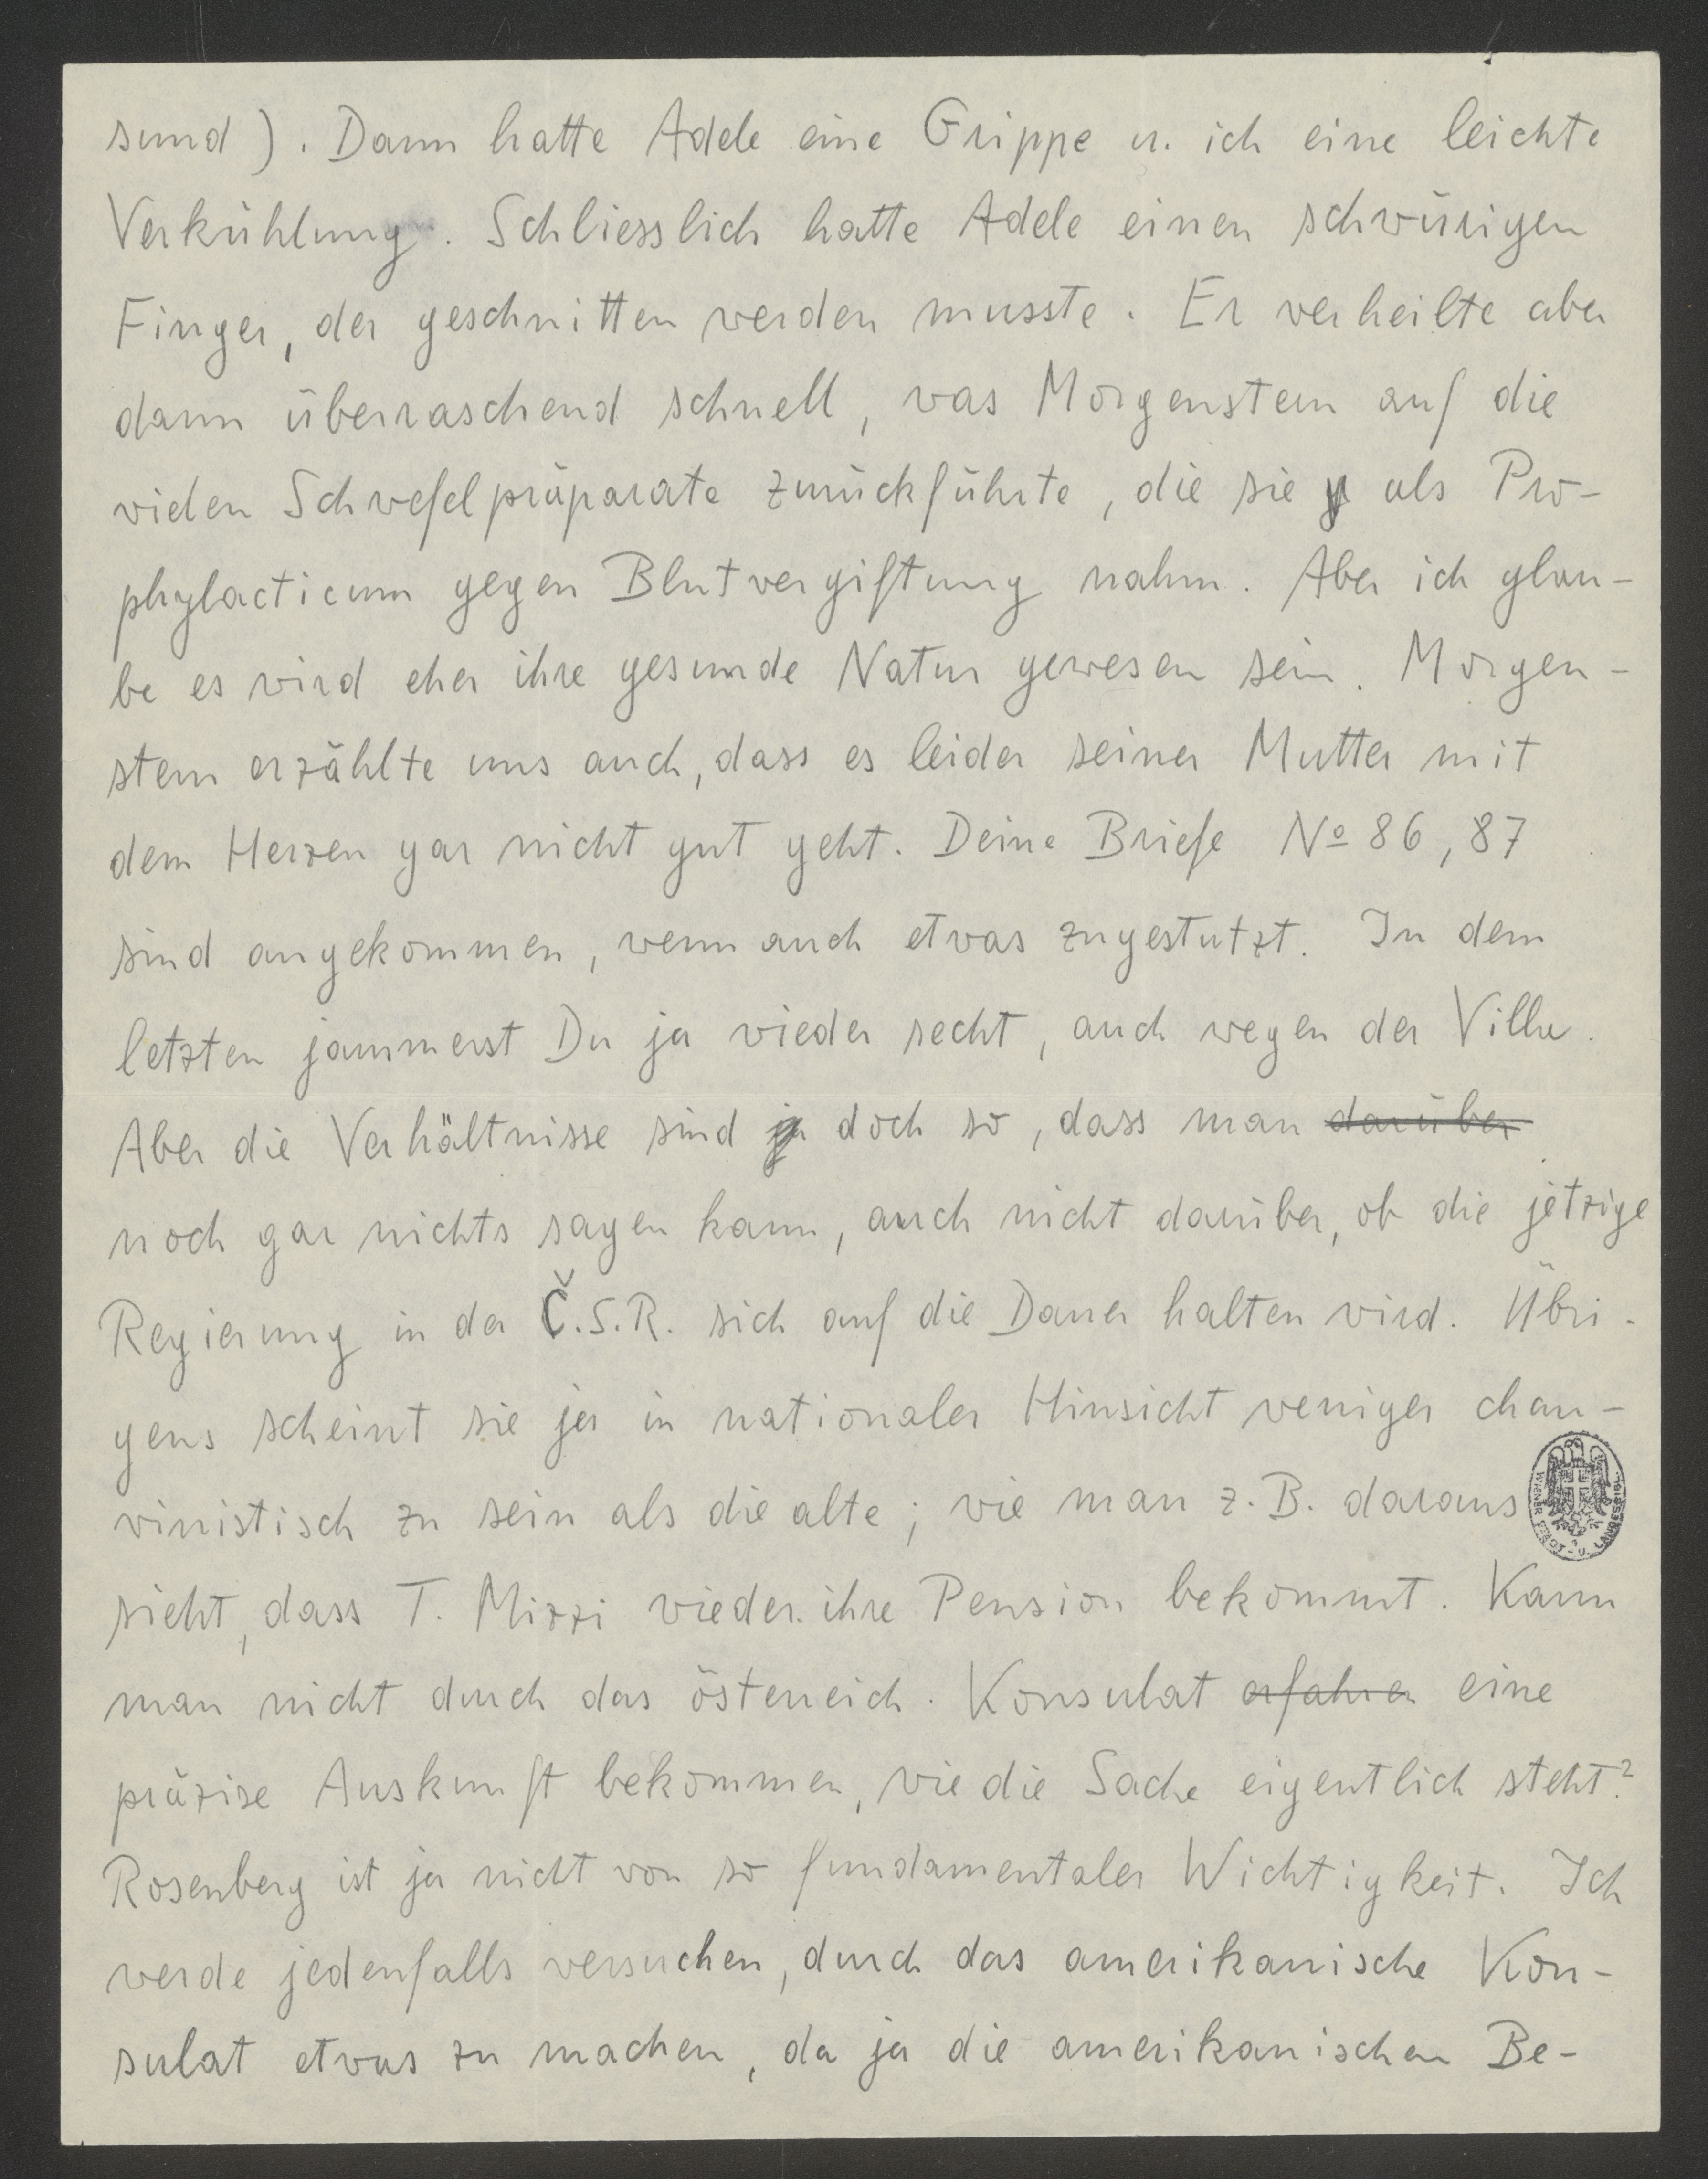 sund). Dann hatte Adele eine Grippe u. ich eine leichte
Verkühlung. Schliesslich hatte Adele einen schwürigen
Finger, der geschnitten werden musste. Er verheilte aber
dann überraschend schnell, was Morgenstern auf die
vielen Schwefelpräparate zurückführte, die sie als Pro-
phylacticum gegen Blutvergiftung nahm. Aber ich glau-
be es wird eher ihre gesunde Natur gewesen sein. Morgen-
stern erzählte uns auch, dass es leider seiner Mutter mit
dem Herzen gar nicht gut geht. Deine Briefe No 86, 87
sind angekommen, wenn auch etwas zugestutzt. In dem
letzten jammerst Du ja wieder recht, auch wegen der Villa.
Aber die Verhältnisse sind ja doch so, dass man darüber
noch gar nichts sagen kann, auch nicht darüber, ob die jetzige
Regierung in der Č.S.R. sich auf die Dauer halten wird. Übri-
gens scheint sie ja in nationaler Hinsicht weniger chau-
vinistisch zu sein als die alte; wie man z.B. daraus
sieht, dass T. Mizzi wieder ihre Pension bekommt. Kann
man nicht durch das österreich. Konsulat erfahren eine
präzise Auskunft bekommen, wie die Sache eigentlich steht?
Rosenberg ist ja nicht von so fundamentaler Wichtigkeit. Ich
werde jedenfalls versuchen, durch das amerikanische Kon-
sulat etwas zu machen, da ja die amerikanischen Be-